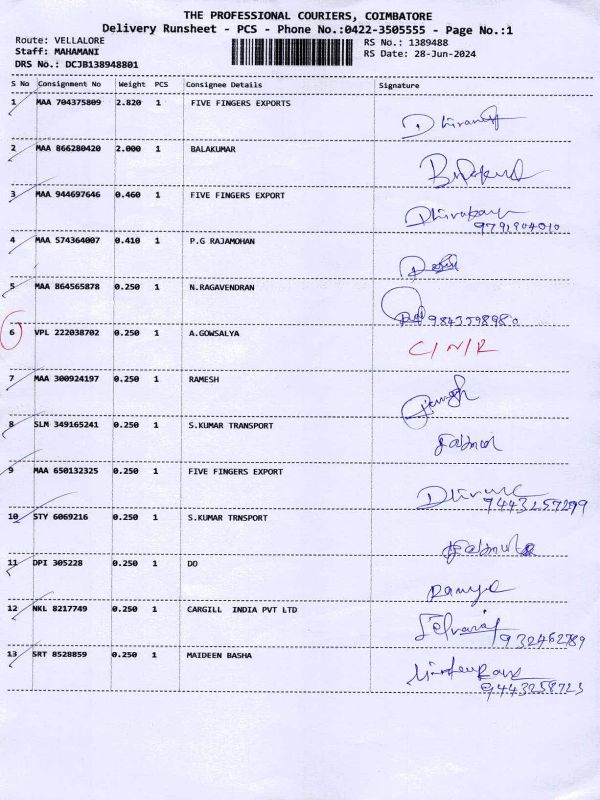 THE PROFESSIONAL COURIERS, COIMBATORE
Delivery Runsheet - PCS - Phone No.:0422-3505555 - Page No.:1
Route: VELLALORE RS No.: 1389488
Staff: MAHAMANI RS Date: 28-Jun-2024
DRS No.: DCJB138948801
S No Consignment No Weight PCS Consignee Details Signature
1 MAA 704375809 2.820 1 FIVE FINGERS EXPORTS
2 MAA 866280420 2.000 1 BALAKUMAR
3 MAA 944697646 0.460 1 FIVE FINGERS EXPORT
4 MAA 574364007 0.410 1 P.G RAJAMOHAN
5 MAA 864565878 0.250 1 N.RAGAVENDRAN
6 VPL 222038702 0.250 1 A.GOWSALYA C/N/R
7 MAA 300924197 0.250 1 RAMESH
8 SLM 349165241 0.250 1 S.KUMAR TRANSPORT
9 MAA 650132325 0.250 1 FIVE FINGERS EXPORT
9443257299
10 STY 6069216 0.250 1 S.KUMAR TRNSPORT
11 DPI 305228 0.250 1 DO
12 NKL 8217749 0.250 1 CARGILL INDIA PVT LTD Selvaraj
932462789
13 SRT 8528859 0.250 1 MAIDEEN BASHA
9443258723